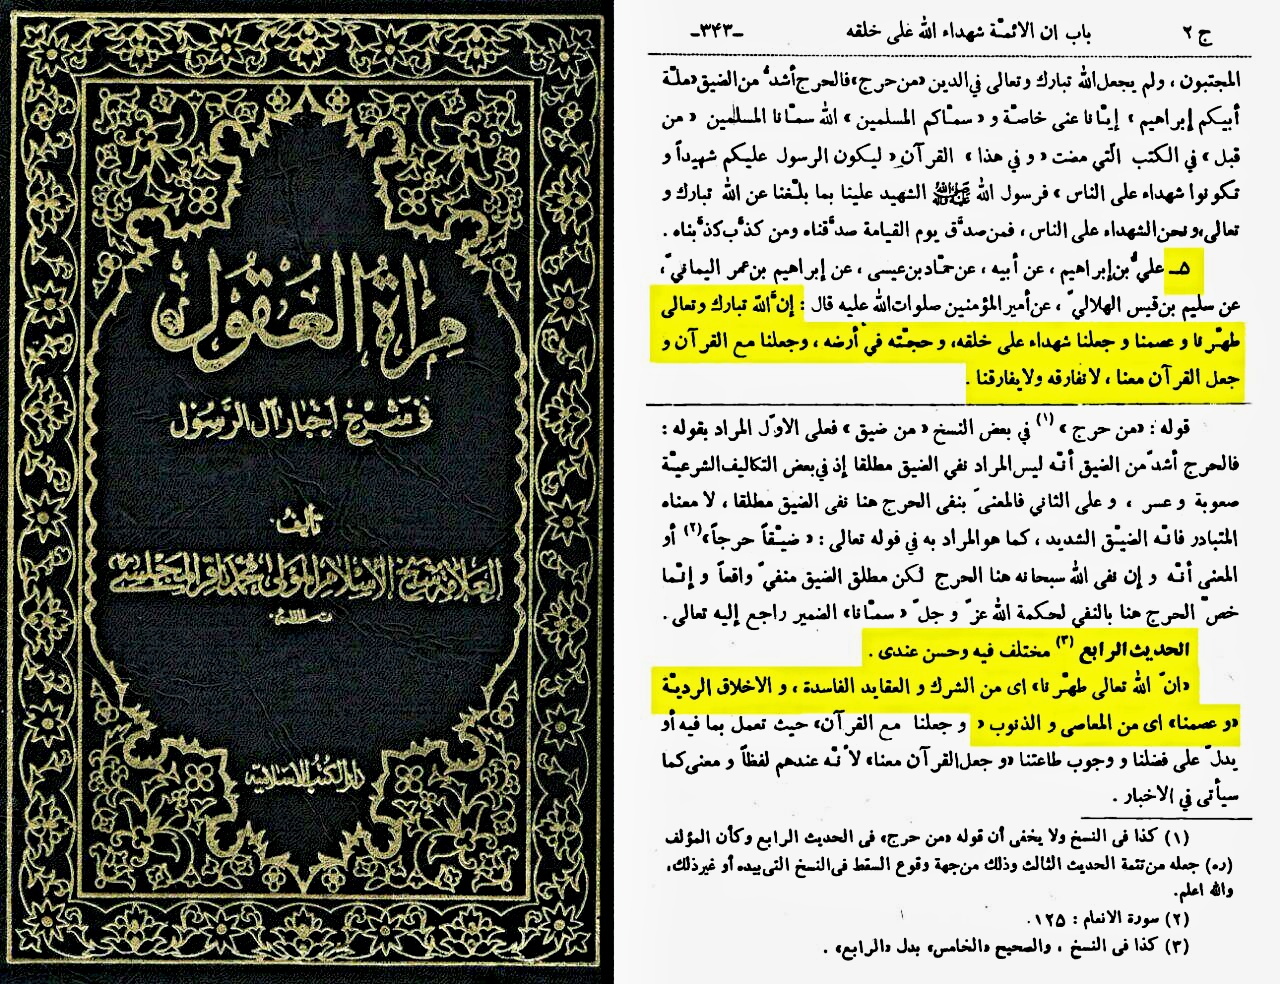 مرآة العقول
في شرح أخبار آل الرسول
تأليف
العلامة شيخ الإسلام المولى محمد باقر المجلسي
دار الكتب الإسلامية
ج ٢
باب ان الائمّة شهداء الله على خلقه
ـ٣٤٣ـ
المجتبون ، ولم يجعل الله تبارك وتعالى في الدين «من حرج» فالحرج أشدُّ من الضيق «ملّة
أبيكم إبراهيم » إيّانا عنى خاصّة و « سمّاكم المسلمين » الله سمّانا المسلمين « من
قبل » في الكتب الّتي مضت « و في هذا » القرآن « ليكون الرسول عليكم شهيداً و
تكونوا شهداء على الناس » فرسول الله ﷺ الشهيد علينا بما بلّغنا عن الله تبارك و
تعالى، ونحن الشهداء على الناس ، فمن صدَّق يوم القيامة صدَّقناه ومن كذَّب كذَّبناه .
٥ـ عليُّ بن إبراهيم ، عن أبيه ، عن حمّاد بن عيسى ، عن إبراهيم بن عمر اليماني ّ،
عن سليم بن قيس الهلالي ّ ، عن أمير المؤمنين صلوات الله عليه قال : إنَّ الله تبارك وتعالى
طهّرنا و عصمنا و جعلنا شهداء على خلقه، و حجّته في أرضه ، وجعلنا مع القرآن و
جعل القرآن معنا ، لا نفارقه ولا يفارقنا .
قوله : «من حرج » (١) في بعض النسخ « من ضيق » فعلى الأوّل المراد بقوله :
فالحرج أشدّ من الضيق أنّه ليس المراد نفي الضيق مطلقا إذ في بعض التكاليف الشرعيّة
صعوبة و عسر ، و على الثاني فالمعنى ّ بنفى الحرج هنا نفى الضيق مطلقا ، لا معناه
المتبادر فانّه الضيّق الشديد ، كما هو المراد به في قوله تعالى : « ضيّقاً حرجاً»(٢) أو
المعنى أنّه و إن نفى الله سبحانه هنا الحرج لكن مطلق الضيق منفي ّ واقعاً و إنّما
خصّ الحرج هنا بالنفي لحكمة الله عزّ و جلّ « سمّانا» الضمير راجع إليه تعالى .
الحديث الرابع (٣) مختلف فيه وحسن عندى .
«انّ الله تعالى طهّرنا» اى من الشرك و العقايد الفاسدة ، و الاخلاق الرديّة
«و عصمنا» اى من المعاصى و الذنوب « و جعلنا مع القرآن» حيث تعمل بما فيه أو
يدلّ على فضلنا و وجوب طاعتنا «و جعل القرآن معنا» لأنّه عندهم لفظاً و معنى كما
سيأتى في الاخبار .
(١) كذا فى النسخ ولا يخفى أن قوله «من حرج» فى الحديث الرابع وكأن المؤلف
(ره) جعله من تتمة الحديث الثالث وذلك من جهة وقوع السقط فى النسخ التى بيده أو غير ذلك،
والله اعلم.
(٢) سورة الانعام : ١٢٥.
(٣) كذا فى النسخ ، والصحيح «الخامس» بدل «الرابع» .